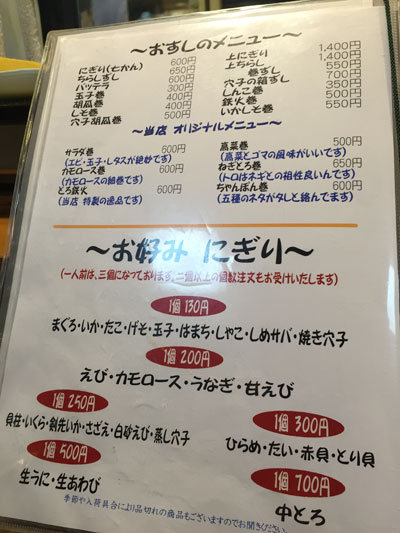 〜おすしのメニュー〜
にぎり(七かん) 600円
ちらしずし 650円
バッテラ 300円
玉子巻 400円
胡瓜巻 400円
しそ巻 500円
穴子胡瓜巻
上にぎり 1,400円
上ちらし 1,400円
巻ずし 550円
穴子の箱ずし 700円
しんこ巻 350円
鉄火巻 500円
いかしそ巻 550円
〜当店 オリジナルメニュー〜
サラダ巻 600円
(エビ・玉子・レタスが絶妙です)
カモロース巻 600円
(カモロースの細巻です)
とろ鉄火 600円
(当店 特製の逸品です)
高菜巻 500円
(高菜とゴマの風味がいいです)
ねぎとろ巻 650円
(トロはネギとの相性良いんです)
ちゃんぽん巻 600円
(五種のネタがタレと絡んでます)
〜お好み にぎり〜
(一人前は、三個になっております。二個以上の個数注文もお受けいたします)
1個 130円
まぐろ・いか・たこ・げそ・玉子・はまち・しゃこ・しめサバ・焼き穴子
1個 200円
えび・カモロース・うなぎ・甘えび
1個 250円
貝柱・いくら・剣先いか・さざえ・白砂えび・蒸し穴子
1個 300円
ひらめ・たい・赤貝・とり貝
1個 500円
生うに・生あわび
1個 700円
中とろ
季節や入荷具合により品切れの商品もございますのでお聞きください。